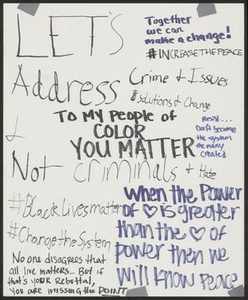 LET'S
Together
we can
make a change!
#INCREASETHEPEACE
Address
Crime & Issues
#Solutions & Change
TO MY People of
COLOR
YOU MATTER
&
Not criminals & Hate
Resist...
Don't become
the system
the many
created
#BlackLivesmatter
#Change the System
No one disagrees that
all live matters... But if
that's your Rebottal,
You are missing the POINT
When the Power
of ♡ is greater
than the ♡ of
power then we
will know peace